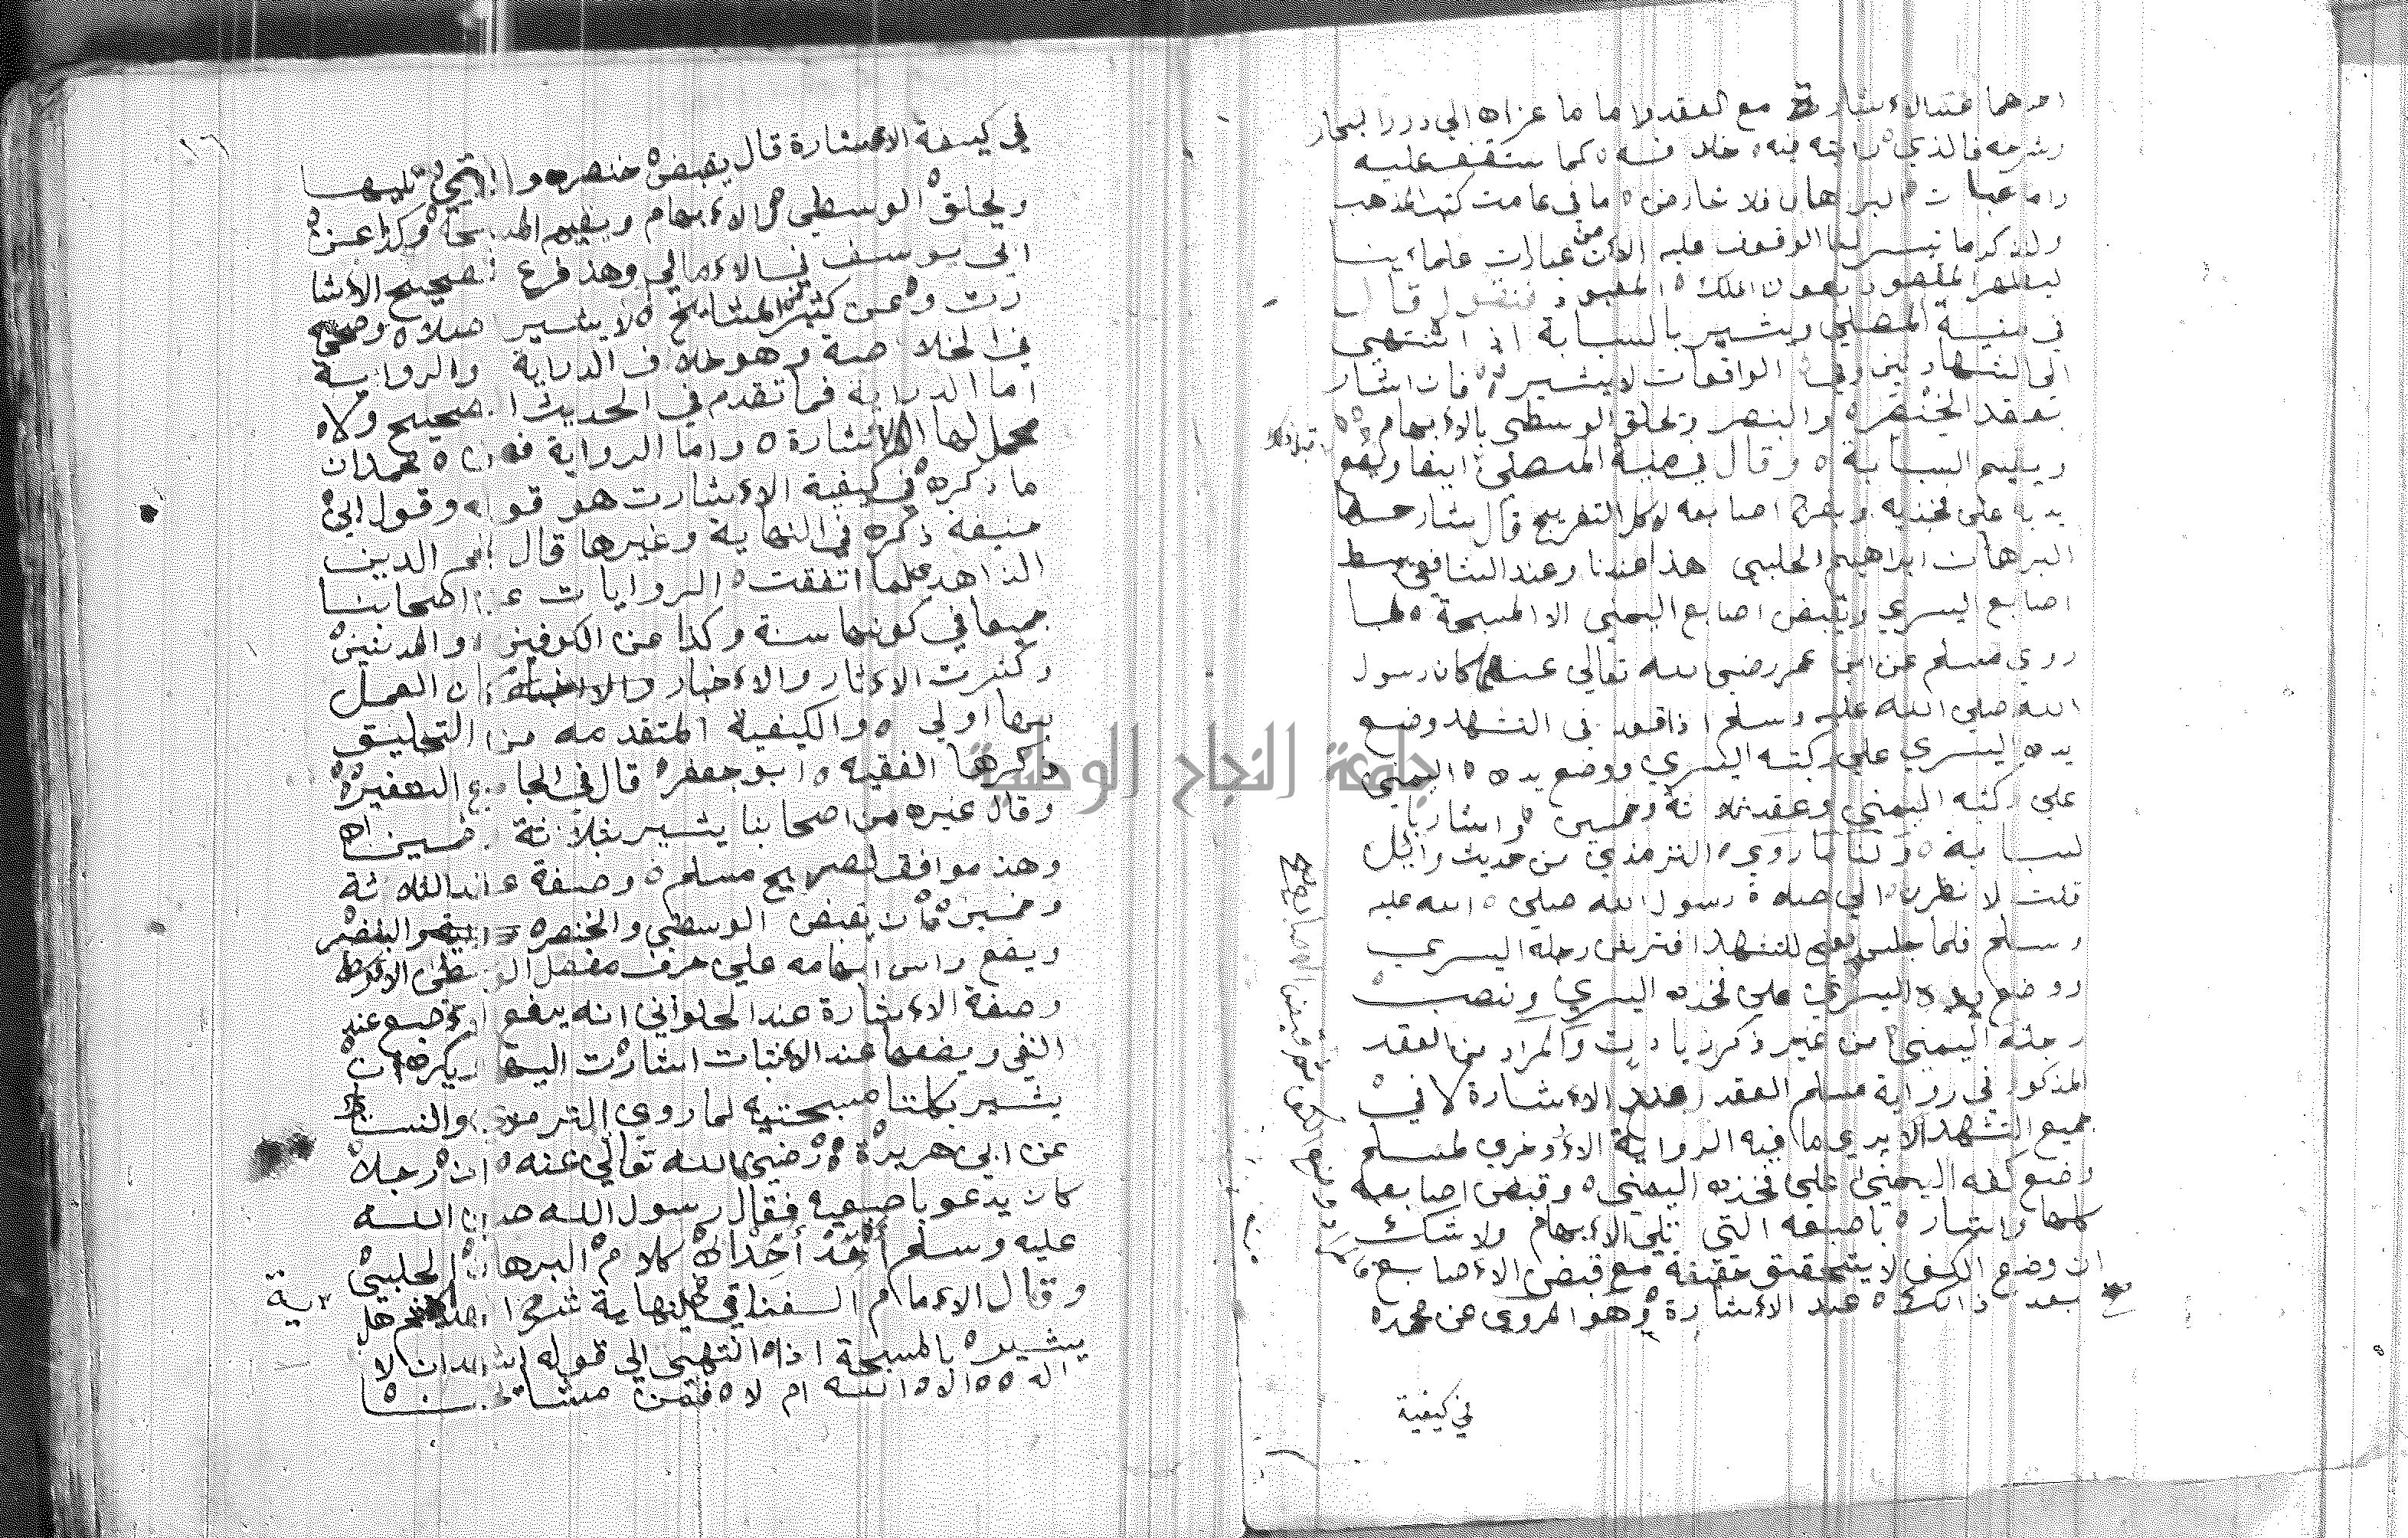 احدهما عند الاءشارة مع العقد واما ما عزاه الي درر البحار
وشرحه فالذي رايته فيه خلافه كما ستقف عليه
واما عبارت البرهان فلا تعارض ما في عامت كتب المذهب
ولنذكر ما تيسر لنا الوقوف عليه الان من عبارات علماءينا
ليظهر المقصود بعون الملك المعبود فنقول قال
في منية المصلي ويشير بالسبابة اذا انتهي
الي الشهادتين وفي الواقعات لا يشير فان اشار
يعقد الخنصر والبنصر وتحلق الوسطي بالاءبهام
ويقيم السبابة وقال في منية المصلي ايضا ويضع
يديه علي فخذيه ويفرج اصابعه لا كل التفريج قال شارحها
البرهان ابراهيم الحلبي هذا عندنا وعند الشافعي يبسط
اصابع اليسري ويقبض اصابع اليمني الا المسبحة لما
روي مسلم عن ابن عمر رضي الله تعالي عنهما كان رسول
الله صلي الله عليه وسلم اذا قعد في التشهد وضع
يده اليسري علي ركبته اليسري ووضع يده اليمني
علي ركبته اليمني وعقد ثلاثة وخمسين واشار با
لسبابة ولنا ما روي الترمذي من حديث وائل
قلت لانظرن الي صلاة رسول الله صلي الله عليه
وسلم فلما جلس يعني للتشهد افترش رجله اليسري
ووضع يده اليسري علي فخذه اليسري ونصب
رجله اليمني من غير ذكر زيادت والمراد من العقد
المذكور في رواية مسلم العقد عند الاءشارة لا في
جميع التشهد الا يري ما فيه الرواية الاءخري لمسلم
وضع كفه اليمني علي فخذه اليمني وقبض اصابعه
كلها واشار باصبعه التي تلي الاءبهام ولا شك
ان وضع الكف لا يتحقق حقيقة مع قبض الاءصابع
بعد ذالك عند الاءشارة وهو المروي عن محمد
في كيفية
١٦
في كيفة الاءشارة قال يقبض خنصره والتي تليها
ويحلق الوسطي والاءبهام ويقيم المسبحة وكذا عن
ابي يوسف في الاءمالي وهذا فرع تصحيح الاءشا
رت وعن كثير من المشايخ لا يشير اصلا وصححه
في الخلاصة وهو خلاف الدراية والرواية
اما الدراية فما تقدم في الحديث الصحيح ولا
محمل لها الا الاءشارة واما الرواية فعن محمد ان
ما ذكره في كيفية الاءشارت هو قوله وقول ابي
حنيفة ذكره في النهاية وغيرها قال نجم الدين
الزاهد لما اتفقت الروايات عن اصحابنا
جميعا في كونها سنة وكذا عن الكوفيين والمدنيين
وكثرت الاءثار والاءخبار كان العمل
بها اولي والكيفية المتقدمه من التحليق
ذكرها الفقيه ابو جعفر قال في الجامع الصغير
وقال غيره من اصحابنا يشير بثلاثة وخمسين اه
وهذا موافق لصريح مسلم وصفة عقد الثلاثة
وخمسين ان يقبض الوسطي والخنصر والبنصر
ويضع راس ابهامه علي حرف مفصل الوسطي الاوسط
وصفة الاءشارة عند الحلواني انه يرفع الاءصبع عند
النفي ويضعها عند الاثبات اشارت اليها ويكره ان
يشير بكلتا مسبحتيه لما روي الترمذي والنسائي
عن ابي هريرة رضي الله تعالي عنه ان رجلا
كان يدعو باصبعيه فقال رسول الله صلي الله
عليه وسلم أحد أحد اه كلام البرهان الحلبي
وقال الاءمام السغناقي في النهاية شرح الهداية ثم هل
يشير بالمسبحة اذا انتهي الي قوله اشهد ان لا
اله الا الله ام لا فمن مشايخنا
جامعة النجاح الوطنية